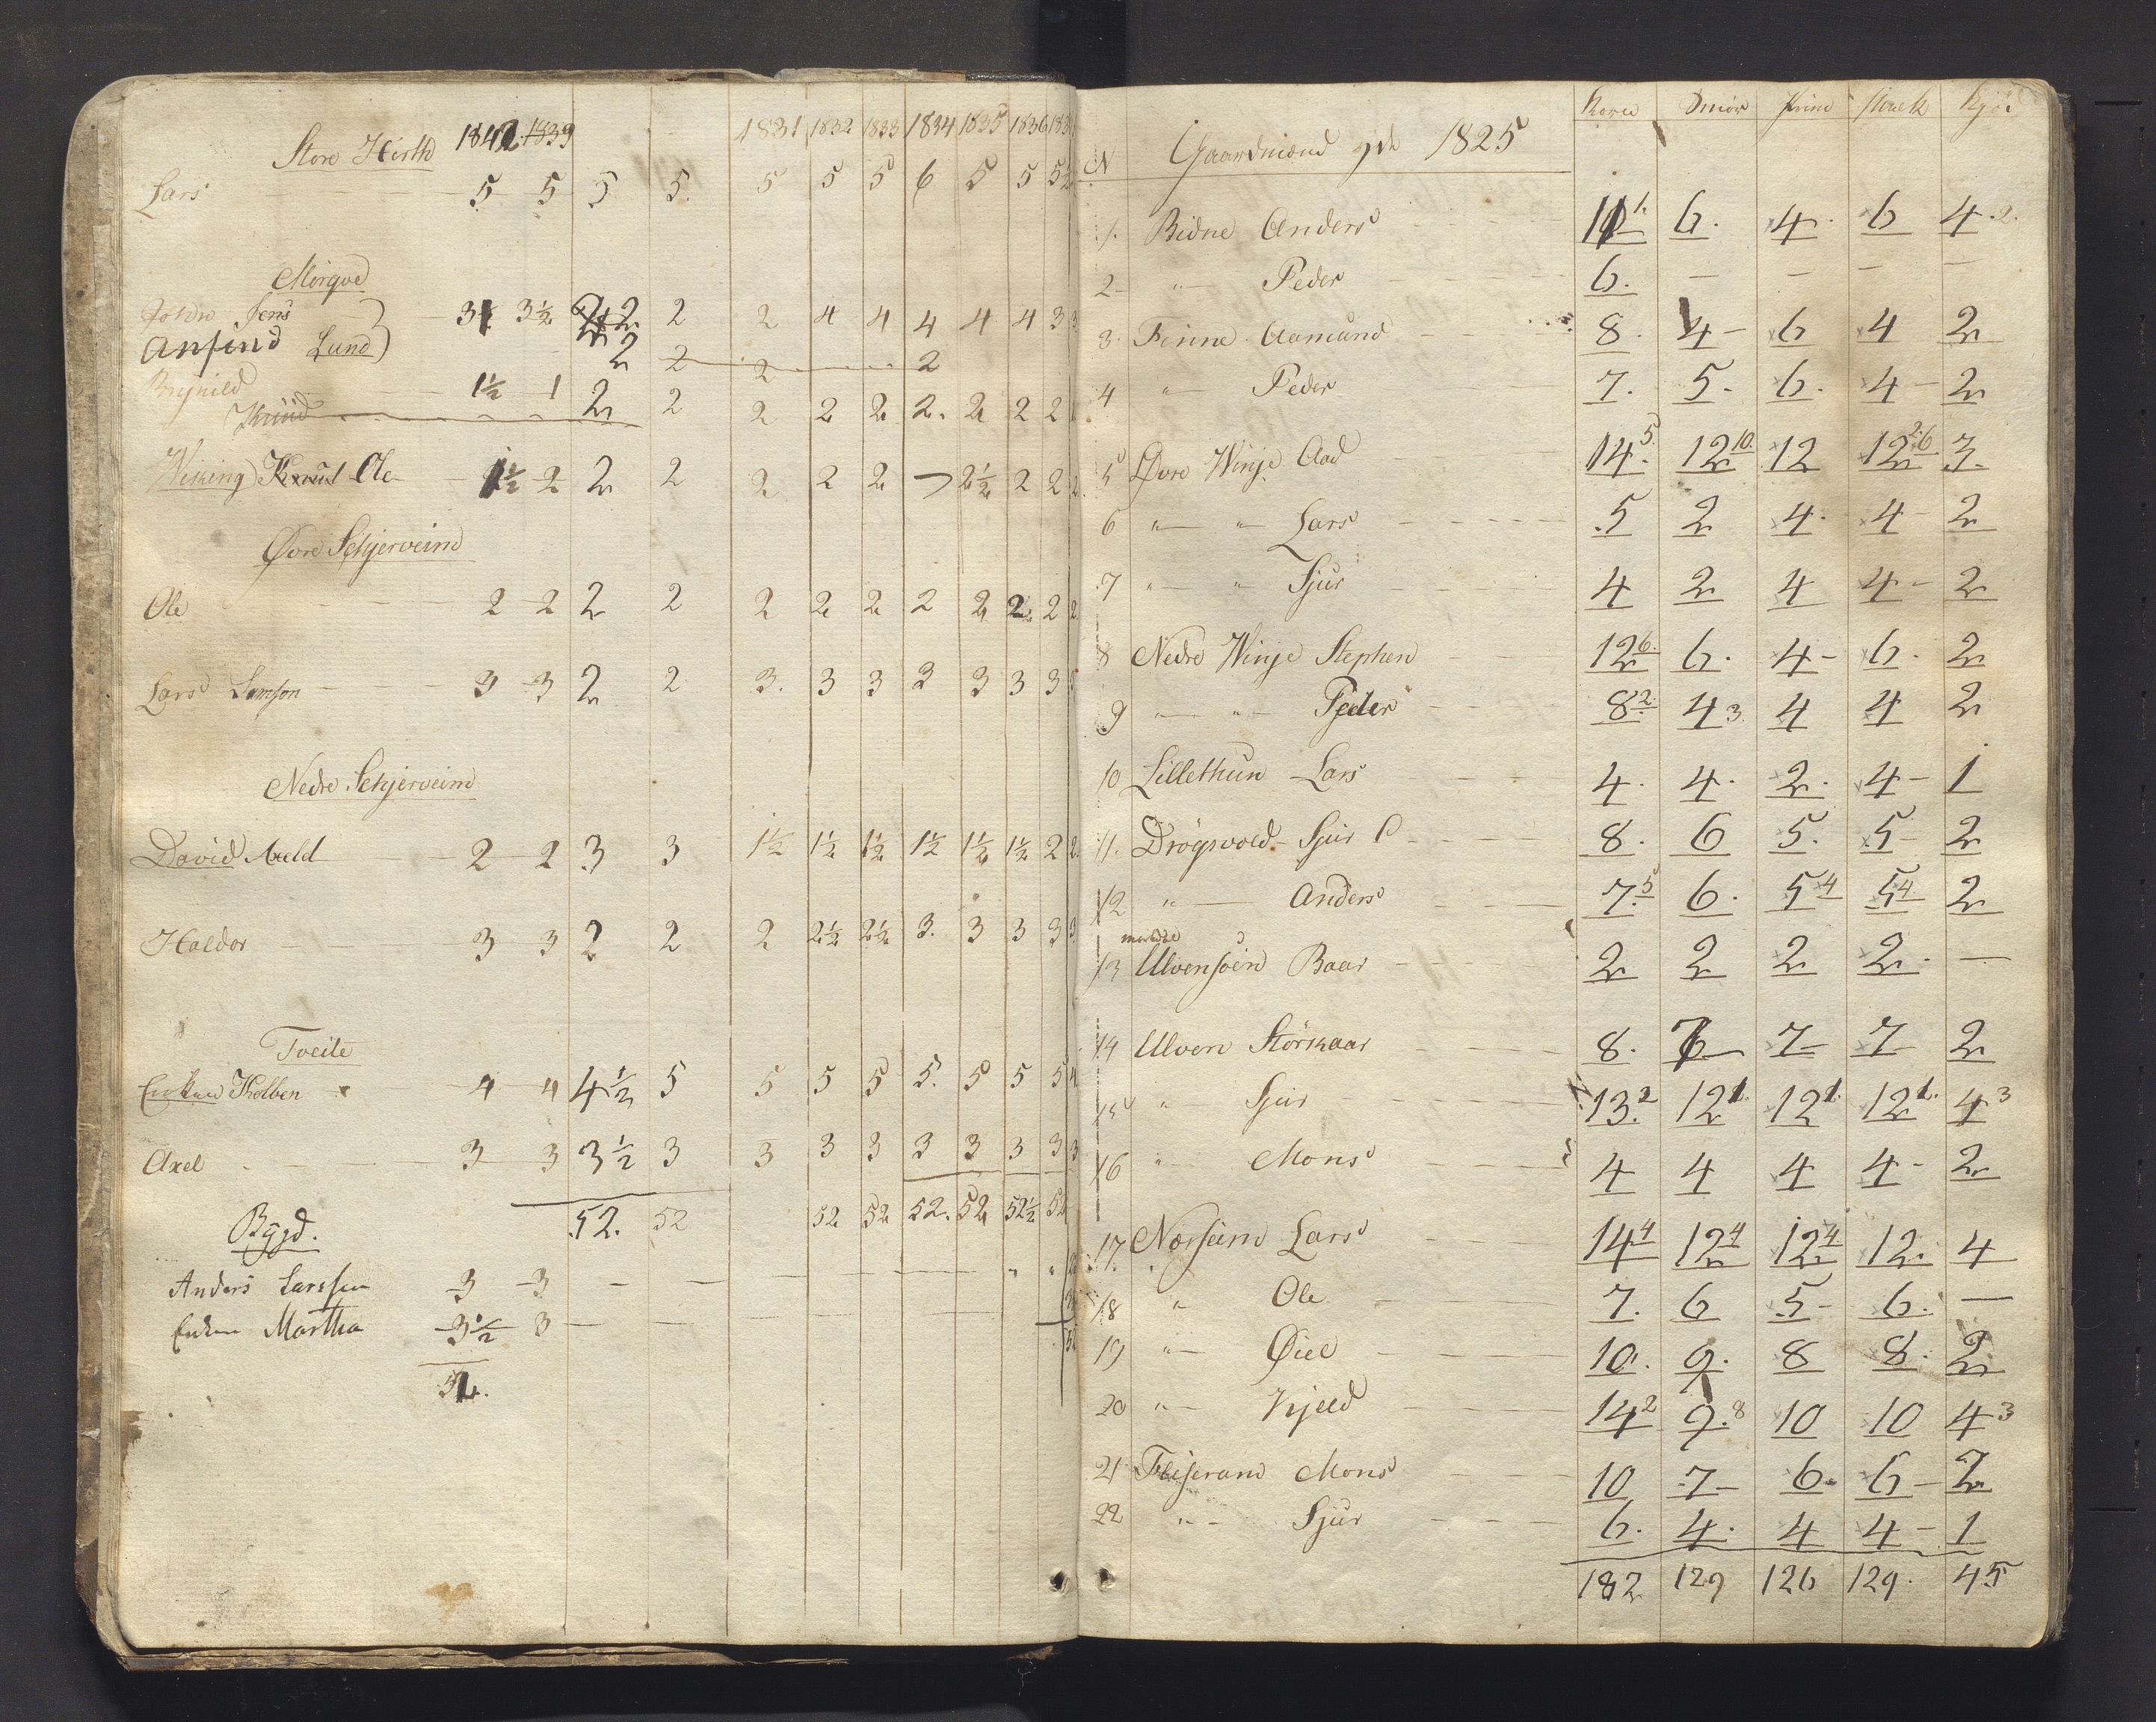 Store Hirth 1842 1839 1831 1832 1833 1834 1835 1836 183
Lars 5 5 5 5 5 5 5 6 5 5 5½
Mirqve
Jens 3 3½ 2 2 2 4 4 4 4 4 3 3
Anfind Lund 2 2 2 2
Brynild 1½ 1 2 2 2 2 2 2. 2 2 2
Knud
Wiking Knud Ole 1½ 2 2 2 2 2 2 2½ 2 2 2.
Øvre Schjerveim
Ole 2 2 2 2 2 2 2 2 2 2 2 2
Lars Samson 3 3 2 2 3. 3 3 3 3 3 3
Nedre Schjerveim
David Aald 2 2 3 3 1½ 1½ 1½ 1½ 1½ 1½ 2 2.
Haldor 3 3 2 2 2 2½ 2½ 3. 3 3 3 3
Tveite
Enken Kolben 4 4 4½ 5 5 5 5 5. 5 5 5 4
Axel 3 3 3½ 3 3 3 3 3 3 3 3 3
52. 52 52 52 52. 52 52½ 52
Bygd.
Anders Larssen 3 3 — — — — — " "
Enken Martha 3½ 3 — — — — —
N Gaardmænd 1825 Korn Smør Prim Kjød
1. Bidne Anders 6. 4. 6 4.2.
2 " Peder 6. — — — —
3. Finne Aamund 8. 4 6 4 2
4 " Peder 7. 5. 6. 4 2
5 Øvre Winje Aad 14.5. 12 10. 12 12 3.
6 " " Lars 5 2 4. 4 2
7 " " Sjur 4 2 4 4 2
8 Nedre Winje Stephen 12 6. 6. 4 6. 2
9 " " Peder 8 2. 4 3. 4 4 2
10 Lillethun Lars 4. 4. 2. 4 1
11. Drögsvold Sjur 8. 6 5. 5 2
12 " Anders 7.5 6. 5 4 5 4. 2
13 Ulvensøen Baar 2 2 2 2. —
14 Ulven Störkaar 8. 7 7 2
15 " Sjur 13.2 12 1. 12 1. 12 1. 4 3
16 " Mons 4 4 4 4 2
17. Norheim Lars 14 4 12 4 12 4. 12. 4
18 " Ole 7. 6 5 6. —
19 " Öiel 10. 9. 8 8. 2
20 " Kjeld 14 2 9.8 10 10 4 3
21 Fleiseram Mons 10 7 6. 6 2
22 " Sjur 6. 4. 4 4 1
182 129 126 129. 45